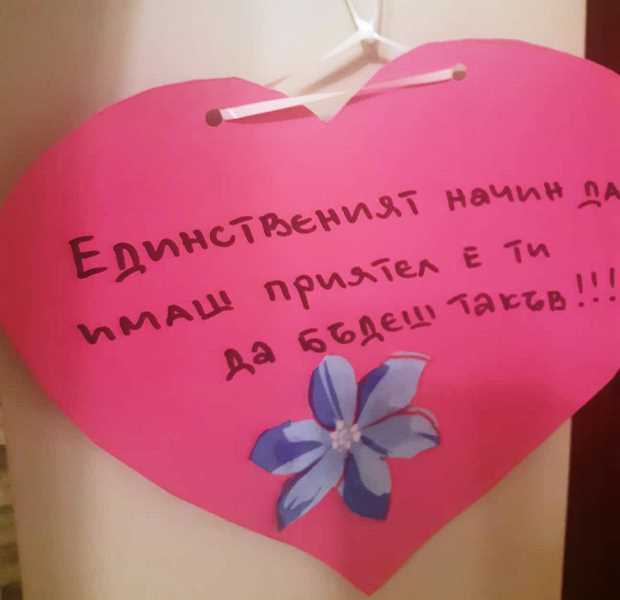 Единственият начин да
имаш приятел е ти
да бъдеш такъв!!!